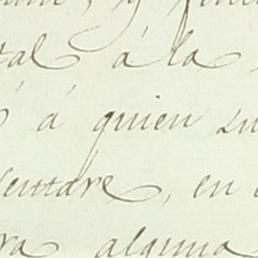 tal á la
á quien su
sentare, en
ra alguna